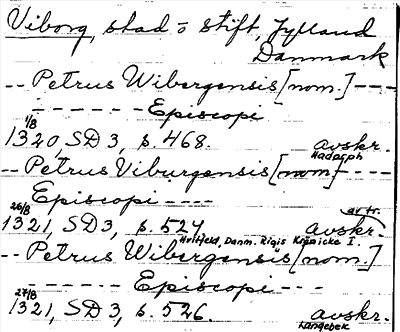 Viborg, stad o stift, Jylland
Danmark
-- Petrus Wibergensis [nom.] ----
------ Episcopi
1/8
1320, SD 3, s. 468. avskr.
Hadorph
-- Petrus Viburgensis [nom] ----
Episcopi ----
26/8
1321, SD 3, s. 524 avtr. avskr.
Hvitfeld, Danm. Rigis Krönicke I.
-- Petrus Wibergensis [nom.]
------ Episcopi ---
27/8
1321, SD 3, s. 526. avskr.
Langebek